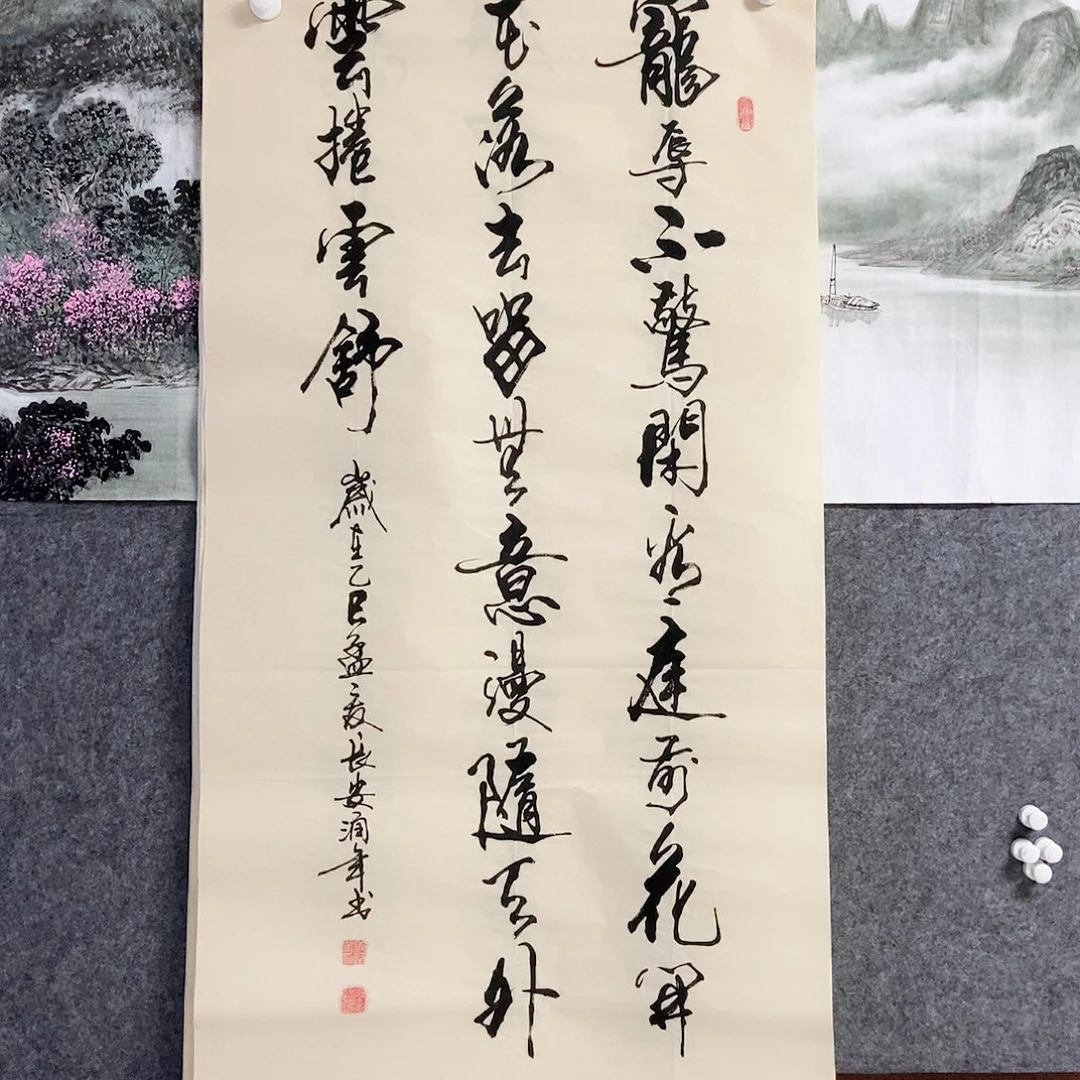 寵辱不驚閑看庭前花開
花落去留無意漫隨天外
雲捲雲舒
歲在乙巳孟夏長安润年书